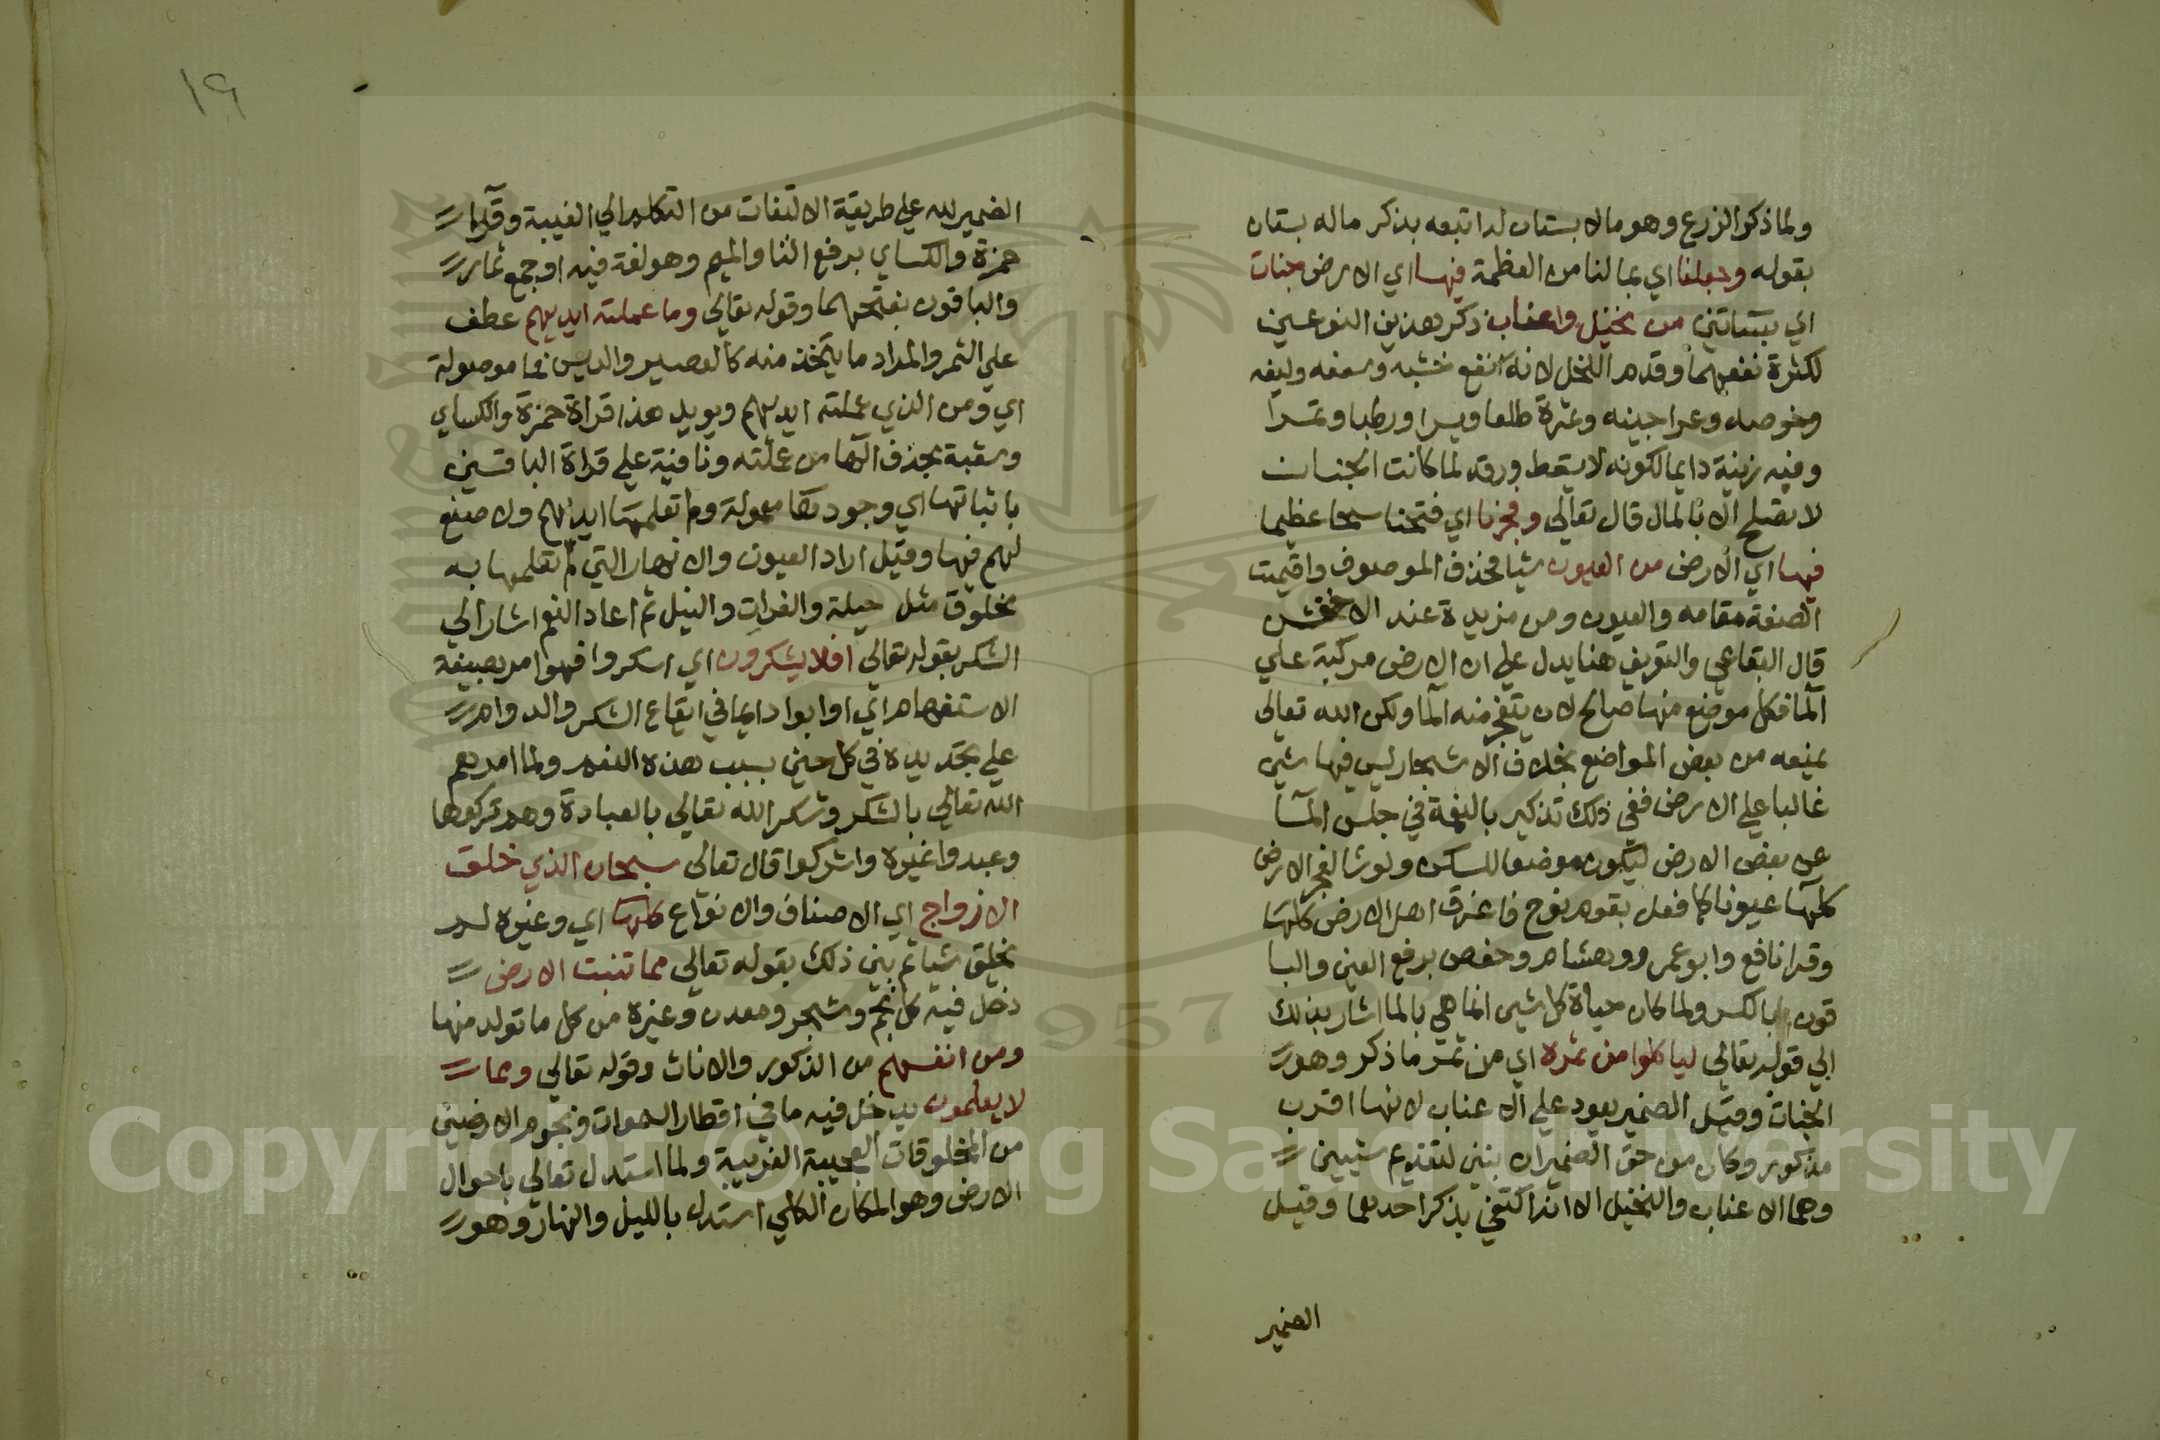 ولما ذكر الزرع وهو مالا بستان له اتبعه بذكر ما له بستان
بقوله وجعلنا اي بما لنا من العظمة فيها اي الارض جنات
اي بساتين من نخيل واعناب ذكر هذين النوعين
لكثرة نفعهما وقدم النخل لانه انفع خشبه وسعفه وليفه
وخوصه وعراجينه وثمرة طلعا وبسرا ورطبا وتمرا
وفيه زينة دايما لكونه لا يسقط ورقه لما كانت الجنات
لا تصلح الا بالما قال تعالي وفجرنا اي فتحنا سبحا عظيما
فيها اي الارض من العيون شيا فحذف الموصوف واقيمت
الصفة مقامه والعيون ومن مزيدة عند الاخفش
قال البقاعي والتعريف هنا يدل علي ان الارض مركبة علي
المآ فكل موضع منها صالح لان يتفجر منه المآ ولكن الله تعالي
يمنعه من بعض المواضع بخلاف الاشجار ليس فيها شي
غالبا علي الارض ففي ذلك تذكير بالنعمة في جلس المآ
عن بعض الارض ليكون موضعا للسكن ولو شا لفجر الارض
كلها عيونا كما فعل بقوم نوح فاغرق اهل الارض كلها
وقرا نافع وابو عمرو وهشام وحفص برفع العين والبا
قون بالكسر ولما كان حياة كل شي انما هي بالما اشار بذلك
الي قوله تعالي لياكلوا من ثمره اي من ثمر ما ذكر وهو
الجنات وقيل الضمير يعود علي الاعناب لانها اقرب
مذكور وكان من حق الضمير ان يثني لتقديم شيين
وهما الاعناب والنخيل الا انه اكتفي بذكر احدهما وقيل
الضمير
١٩
الضمير لله علي طريقة الالتفات من التكلم الي الغيبة وقرا
حمزة والكساي برفع الثا والميم وهو لغة فيه او جمع ثمار
والباقون بفتحهما وقوله تعالي وما عملته ايديهم عطف
علي الثمر والمراد ما يتخذ منه كالعصير والدبس فما موصولة
اي ومن الذي عملته ايديهم ويويد هذا قراة حمزة والكساي
وشعبة بحذف الها من عملته ونافية علي قراة الباقين
باثباتها اي وجودها معمولة ولم تعلمها ايديهم ولا صنع
لهم فيها وقيل اراد العيون والانهار التي لم تعلمها به
مخلوق مثل دجلة والفرات والنيل ثم اعاد النعم اشار الي
الشكر بقوله تعالي افلا يشكرون اي اشكروا فهو امر بصيغة
الاستفهام اي اوابوا دايما في ايقاع الشكر والدوام
علي تجديده في كل حين بسبب هذه النعم ولما امرهم
الله تعالي بالشكر وشكر الله تعالي بالعبادة وهم تركوها
وعبدوا غيره واشركوا قال تعالي سبحان الذي خلق
الازواج اي الاصناف والانواع كلها اي وغيره لم
يخلق شيا ثم بين ذلك بقوله تعالي مما تنبت الارض
دخل فيه كل نجم وشجر ومعدن وغيره من كل ما تولد منها
ومن انفسهم من الذكور والاناث وقوله تعالي ومما
لا يعلمون يدخل فيه ما في اقطار السموات ونجوم الارضين
من المخلوقات العجيبة الغريبة ولما استدل تعالي باحوال
الارض وهو المكان الكلي استدل بالليل والنهار وهو
Copyright © King Saud University
1957